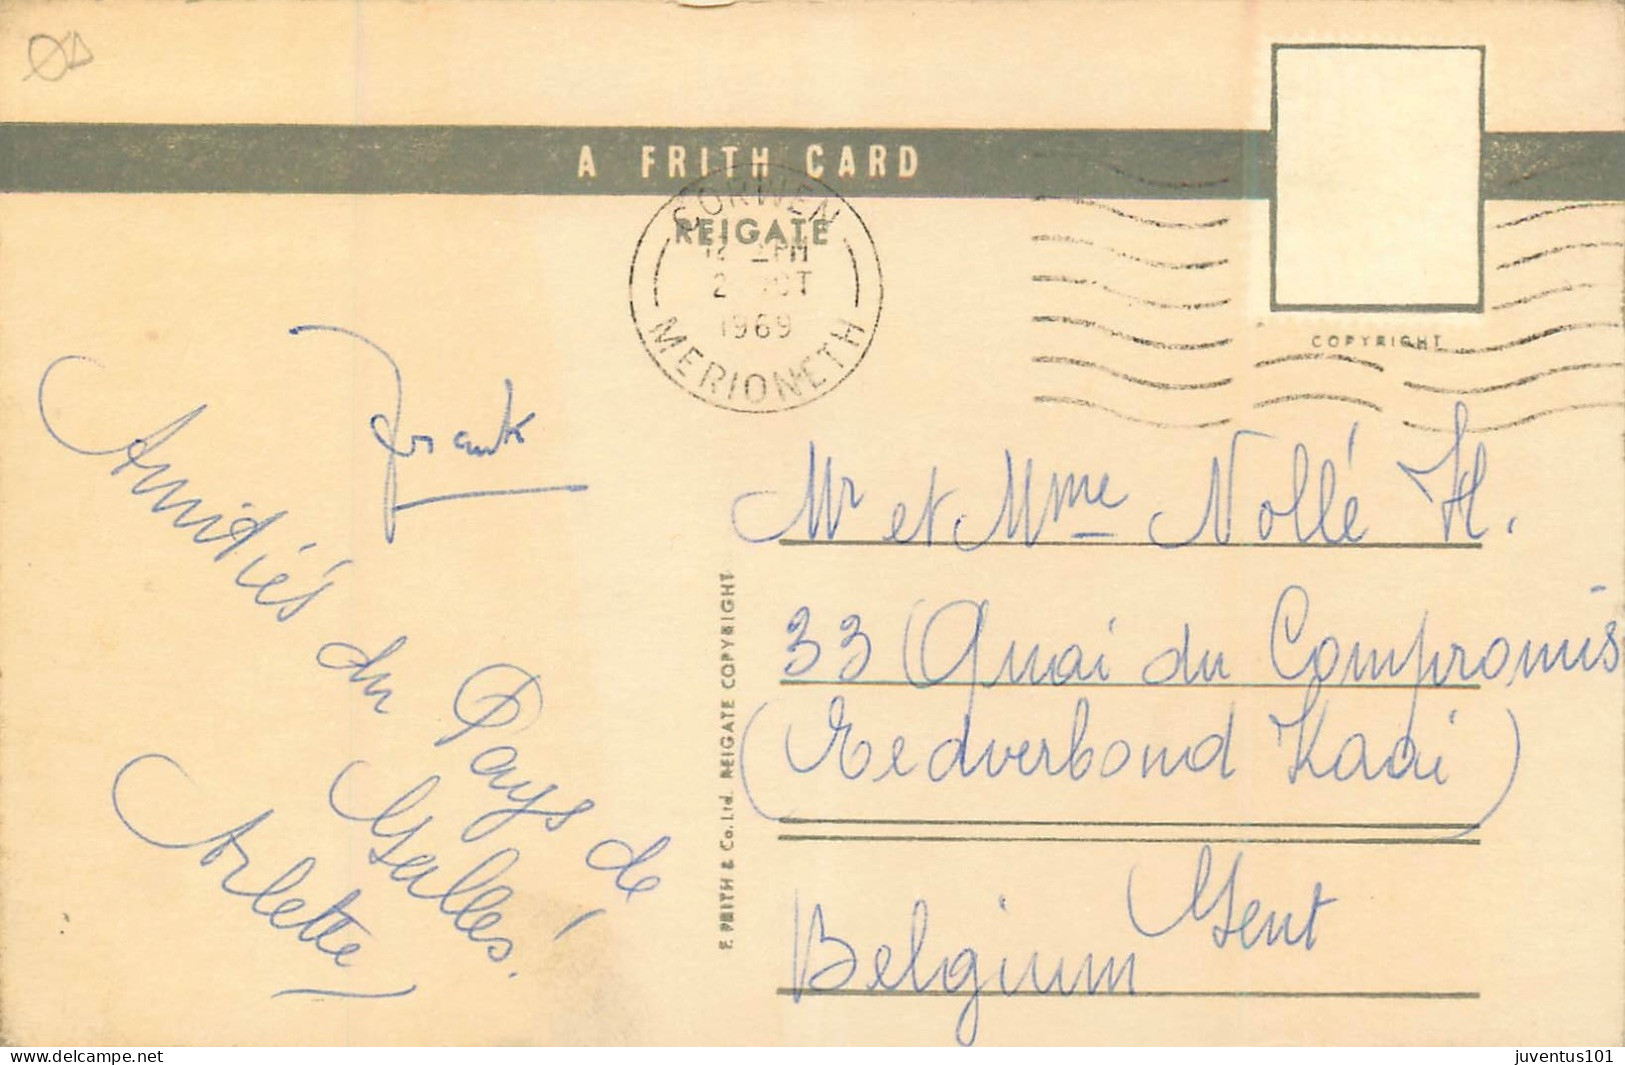 A FRITH CARD
CORWEN
REIGATE
PM
2 OCT
1969
MERIONETH
COPYRIGHT
Frank
Amitiés du Pays de
Galles!
Arlette
F. FRITH & Co. Ltd. REIGATE COPYRIGHT
Mr et Mme Nollé H.
33 Quai du Compromis
(Redverbond Kaai)
Gent
Belgium
delcampe.net
juventus101